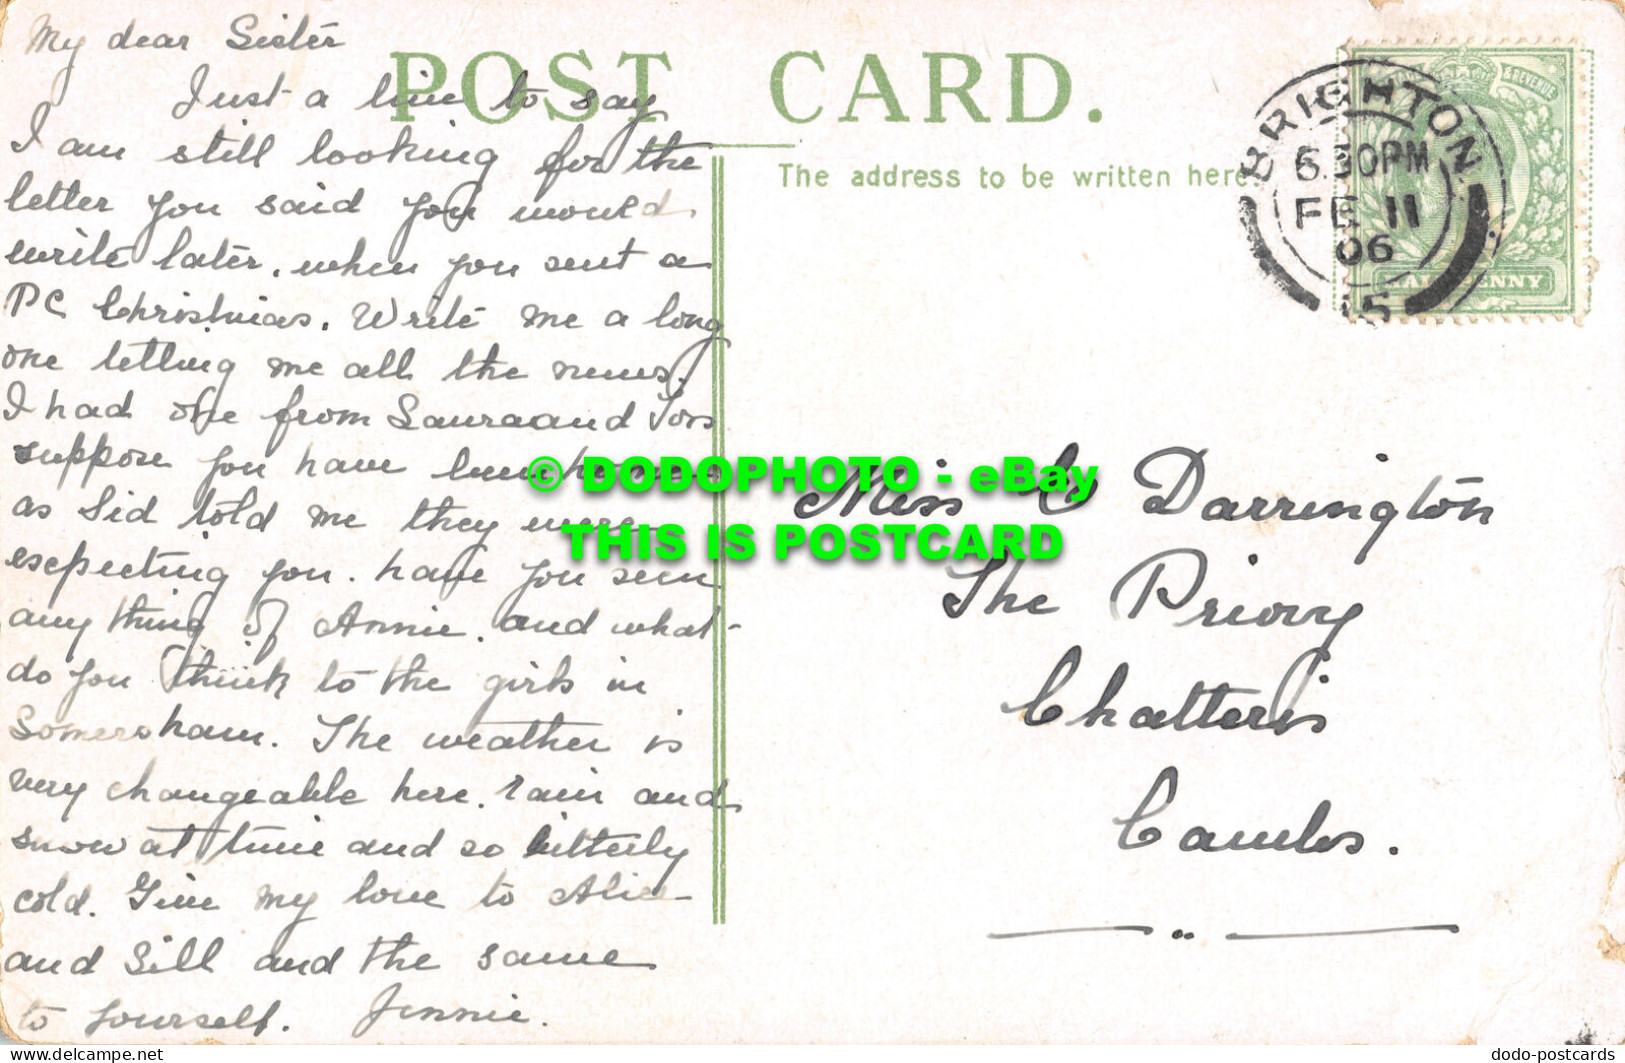 My dear Sister
Just a line to say
I am still looking for the
letter you said you would
write later, when you sent a
PC Christmas. Write me a long
one telling me all the news.
I had one from Laura and
suppose you have been home
as Sid told me they were
expecting you. have you seen
any thing of Annie. and what
do you think to the girls in
Somersham. The weather is
very changeable here. rain and
snow at time and so bitterly
cold. Give my love to Alice
and Sill and the same
to yourself. Jennie.
POST CARD.
The address to be written here.
BRIGHTON
6.30PM
FE 11
06
15
& REVENUE
HALFPENNY
Miss C Darrington
The Priory
Chatteris
Cambs.
© DODOPHOTO - eBay
THIS IS POSTCARD
www.delcampe.net
dodo-postcards